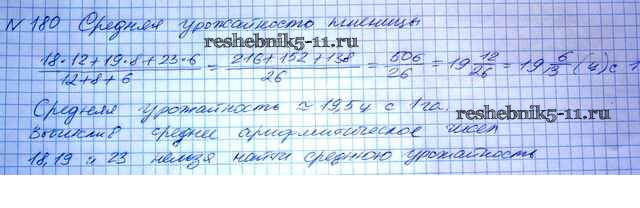 N 180 Средняя урожайность пшеницы
reshebnik5-11.ru
(18·12+19·8+23·6)/(12+8+6) = (216+152+138)/26 = 506/26 = 19 12/26 = 19 6/13 (ц) с 1
Средняя урожайность ≈ 19,5 ц с 1 га.
reshebnik5-11.ru
Вычислив среднее арифметическое чисел
18, 19 и 23 нельзя найти среднюю урожайность